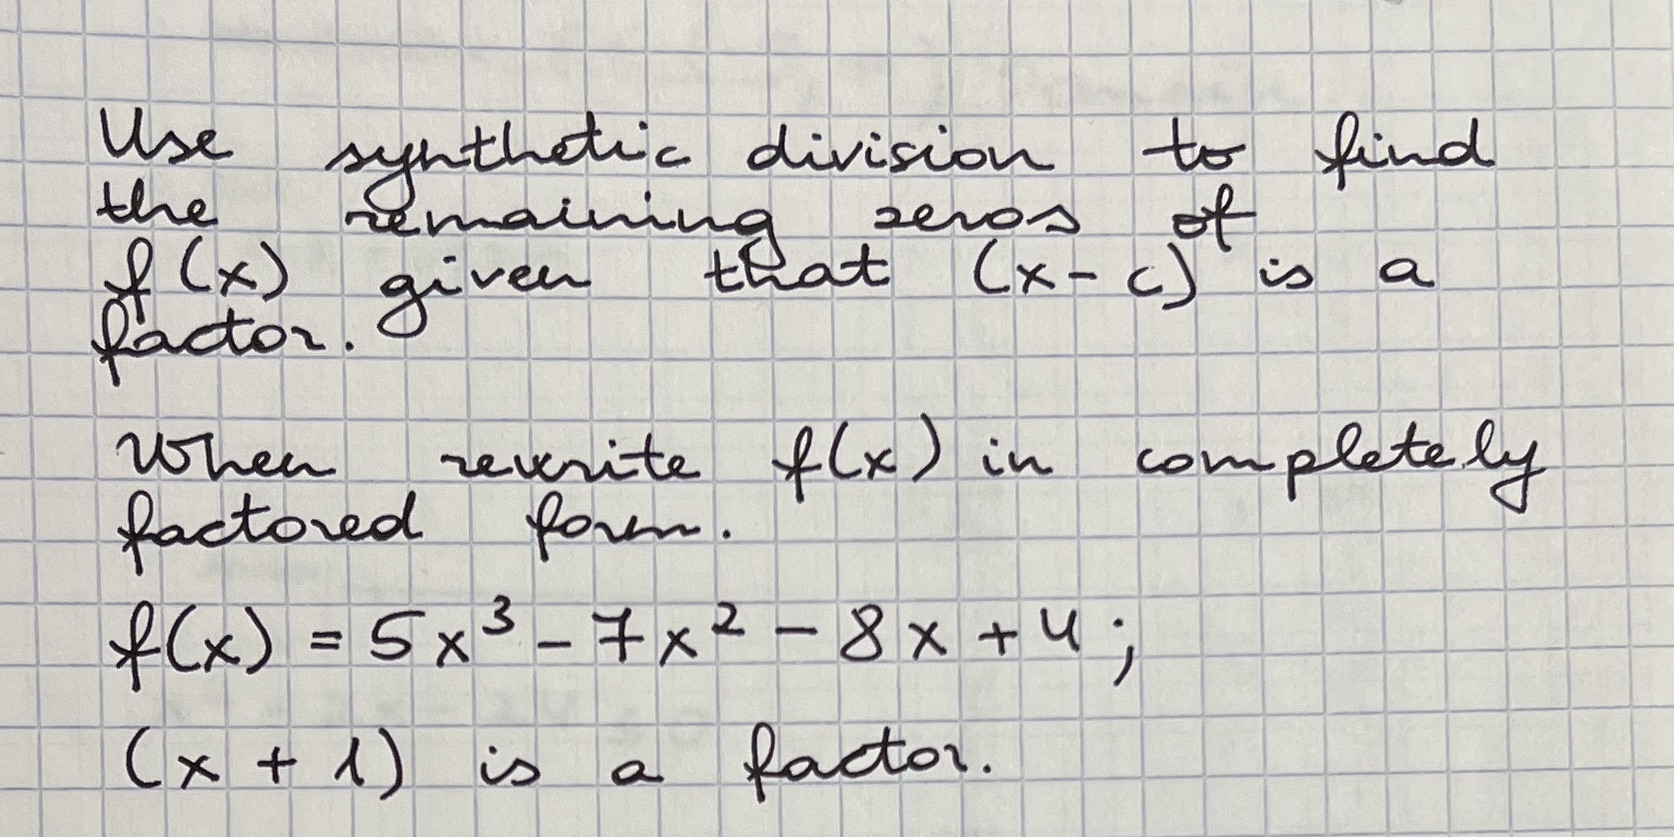 Use synthetic division to find
the remaining zeros of
f(x) given that (x-c) is a
factor.
When rewrite f(x) in completely
factored form.
f(x) = 5x³ - 7x² - 8x + 4;
(x + 1) is a factor.